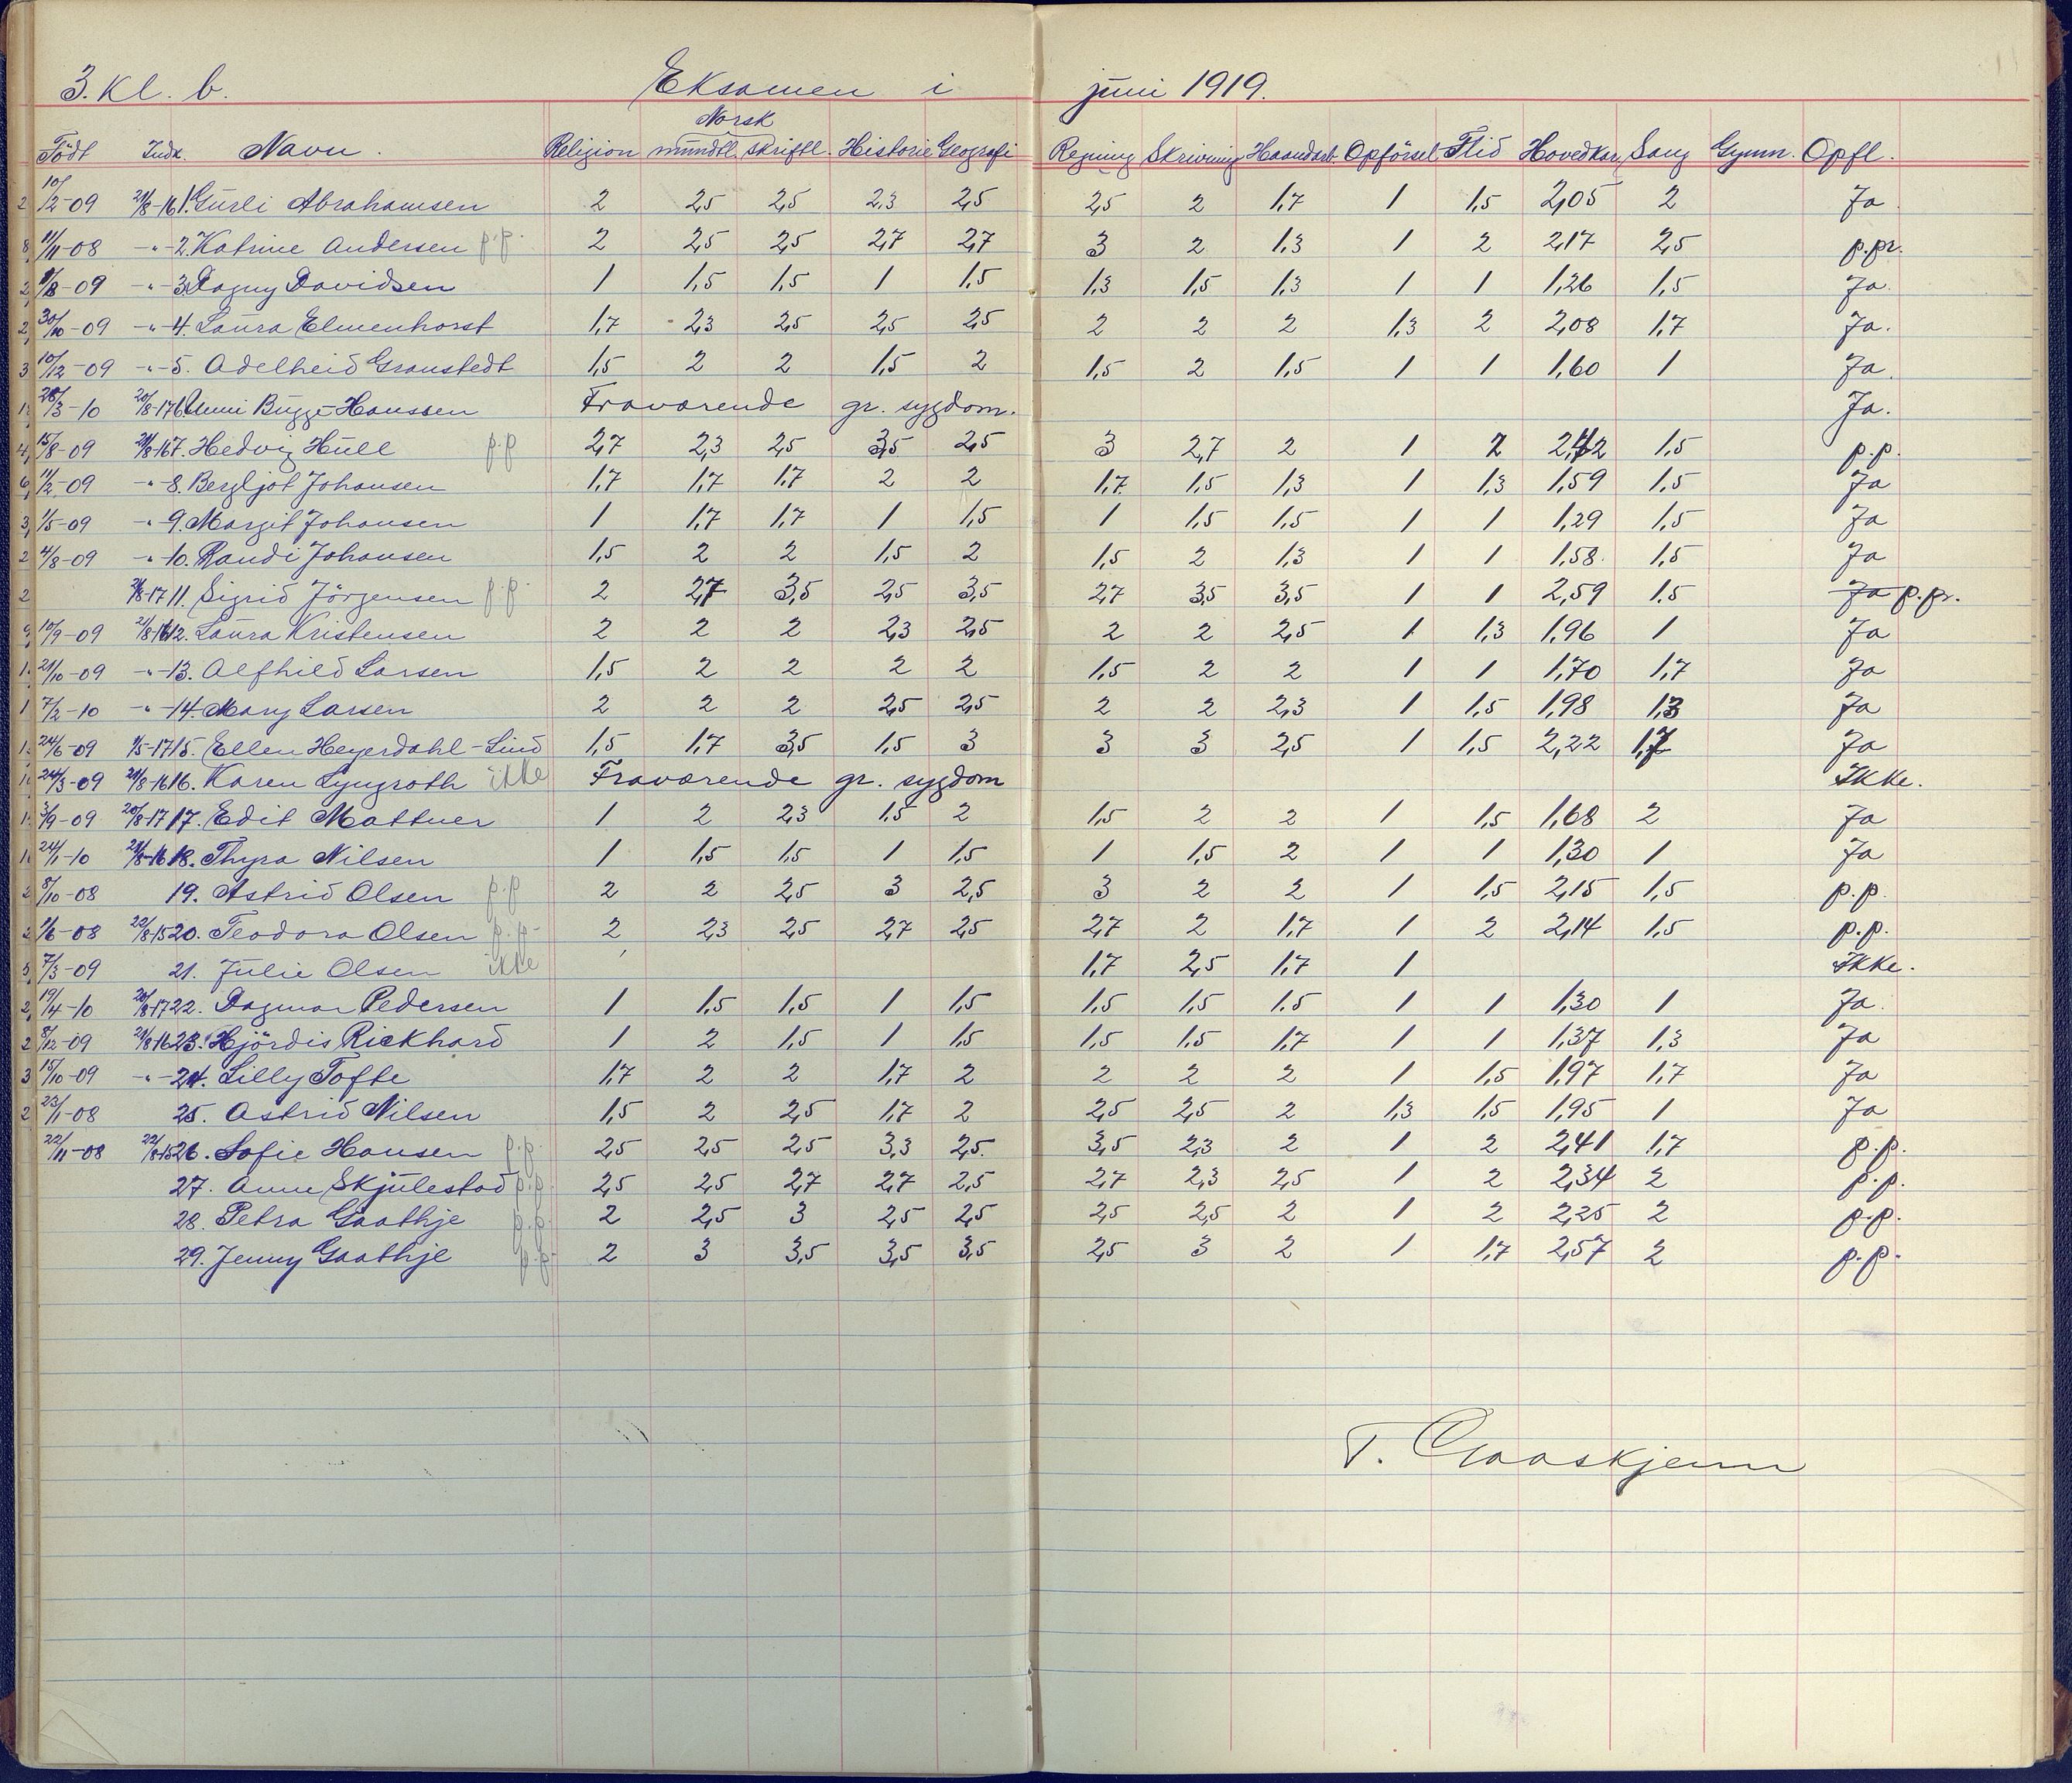 3. Kl. b. Eksamen i juni 1919.
Norsk
Födt Indk. Navn. Religion mundtl. skriftl. Historie Geografi Regning Skrivning Haandarb. Opförsel Flid Hovedkar. Sang Gymn. Opfl.
2 10/2-09 21/8-16 1. Gurli Abrahamsen 2 2,5 2,5 2,3 2,5 2,5 2 1,7 1 1,5 2,05 2 Ja
8 11/11-08 -"- 2. Katrine Andersen p.p. 2 2,5 2,5 2,7 2,7 3 2 1,3 1 2 2,17 2,5 p.pr.
2 /8-09 -"- 3. Dagny Davidsen 1 1,5 1,5 1 1,5 1,3 1,5 1,3 1 1 1,26 1,5 Ja.
2 30/10-09 -"- 4. Laura Elmenhorst 1,7 2,3 2,5 2,5 2,5 2 2 2 1,3 2 2,08 1,7 Ja.
3 10/12-09 -"- 5. Adelheid Granstedt 1,5 2 2 1,5 2 1,5 2 1,5 1 1 1,60 1 Ja.
1 28/3-10 20/8-17 6. Unni Bugge-Hanssen Fraværende gr. sygdom. Ja.
4 15/8-09 21/8-16 7. Hedvig Hüll p.p 2,7 2,3 2,5 3,5 2,5 3 2,7 2 1 2 2,42 1,5 p.p.
6 11/2-09 -"- 8. Bergljot Johansen 1,7 1,7 1,7 2 2 1,7 1,5 1,3 1 1,3 1,59 1,5 Ja
3 1/5-09 -"- 9. Margit Johansen 1 1,7 1,7 1 1,5 1 1,5 1,5 1 1 1,29 1,5 Ja
2 4/8-09 -"- 10. Randi Johansen 1,5 2 2 1,5 2 1,5 2 1,3 1 1 1,58 1,5 Ja
2 21/8-17 11. Sigrid Jörgensen p.p. 2 2,7 3,5 2,5 3,5 2,7 3,5 3,5 1 1 2,59 1,5 Ja p.pr.
9 10/9-09 21/8-16 12. Laura Kristensen 2 2 2 2,3 2,5 2 2 2,5 1 1,3 1,96 1 Ja
1 21/10-09 -"- 13. Alfhild Larsen 1,5 2 2 2 2 1,5 2 2 1 1 1,70 1,7 Ja
1 7/2-10 -"- 14. Mary Larsen 2 2 2 2,5 2,5 2 2 2,3 1 1,5 1,98 1,3 Ja
1 24/6-09 1/5-17 15. Ellen Heyerdahl-Lind 1,5 1,7 3,5 1,5 3 3 3 2,5 1 1,5 2,22 1,7 Ja
1 24/3-09 21/8-16 16. Karen Lyngroth ikke Fraværende gr. sygdom Ikke.
1 3/9-09 20/8-17 17. Edit Mattner 1 2 2,3 1,5 2 1,5 2 2 1 1,5 1,68 2 Ja
1 24/1-10 21/8-16 18. Thyra Nilsen 1 1,5 1,5 1 1,5 1 1,5 2 1 1 1,30 1 Ja
2 8/10-08 19. Astrid Olsen p.p 2 2 2,5 3 2,5 3 2 2 1 1,5 2,15 1,5 p.p.
2 1/6-08 22/8-15 20. Teodora Olsen p.p- 2 2,3 2,5 2,7 2,5 2,7 2 1,7 1 2 2,14 1,5 p.p.
5 7/3-09 21. Julie Olsen ikke 1,7 2,5 1,7 1 Ikke.
2 19/4-10 20/8-17 22. Dagmar Pedersen 1 1,5 1,5 1 1,5 1,5 1,5 1.5 1 1 1,30 1 Ja.
2 8/12-09 21/8-16 23. Hjördis Rickhard 1 2 1,5 1 1,5 1,5 1,5 1,7 1 1 1,37 1,3 Ja
3 15/10-09 -"- 24. Lilly Tofte 1,7 2 2 1,7 2 2 2 2 1 1,5 1,97 1,7 Ja
2 23/1-08 25. Astrid Nilsen 1,5 2 2,5 1,7 2 2,5 2,5 2 1,3 1,5 1,95 1 Ja
22/11-08 22/8-15 26. Sofie Hansen p.p. 2,5 2,5 2,5 3,3 2,5. 3,5 2,3 2 1 2 2,41 1,7 p.p.
27. Anne Skjulestad p.p. 2,5 2,5 2,7 2,7 2,5 2,7 2,3 2,5 1 2 2,34 2 p.p.
28. Petra Gaathje p.p. 2 2,5 3 2,5 2,5 2,5 2,5 2 1 2 2,25 2 p.p.
29. Jenny Gaathje p.p- 2 3 3,5 3,5 3,5 2,5 3 2 1 1,7 2,57 2 p.p.
T. Graaskjenn